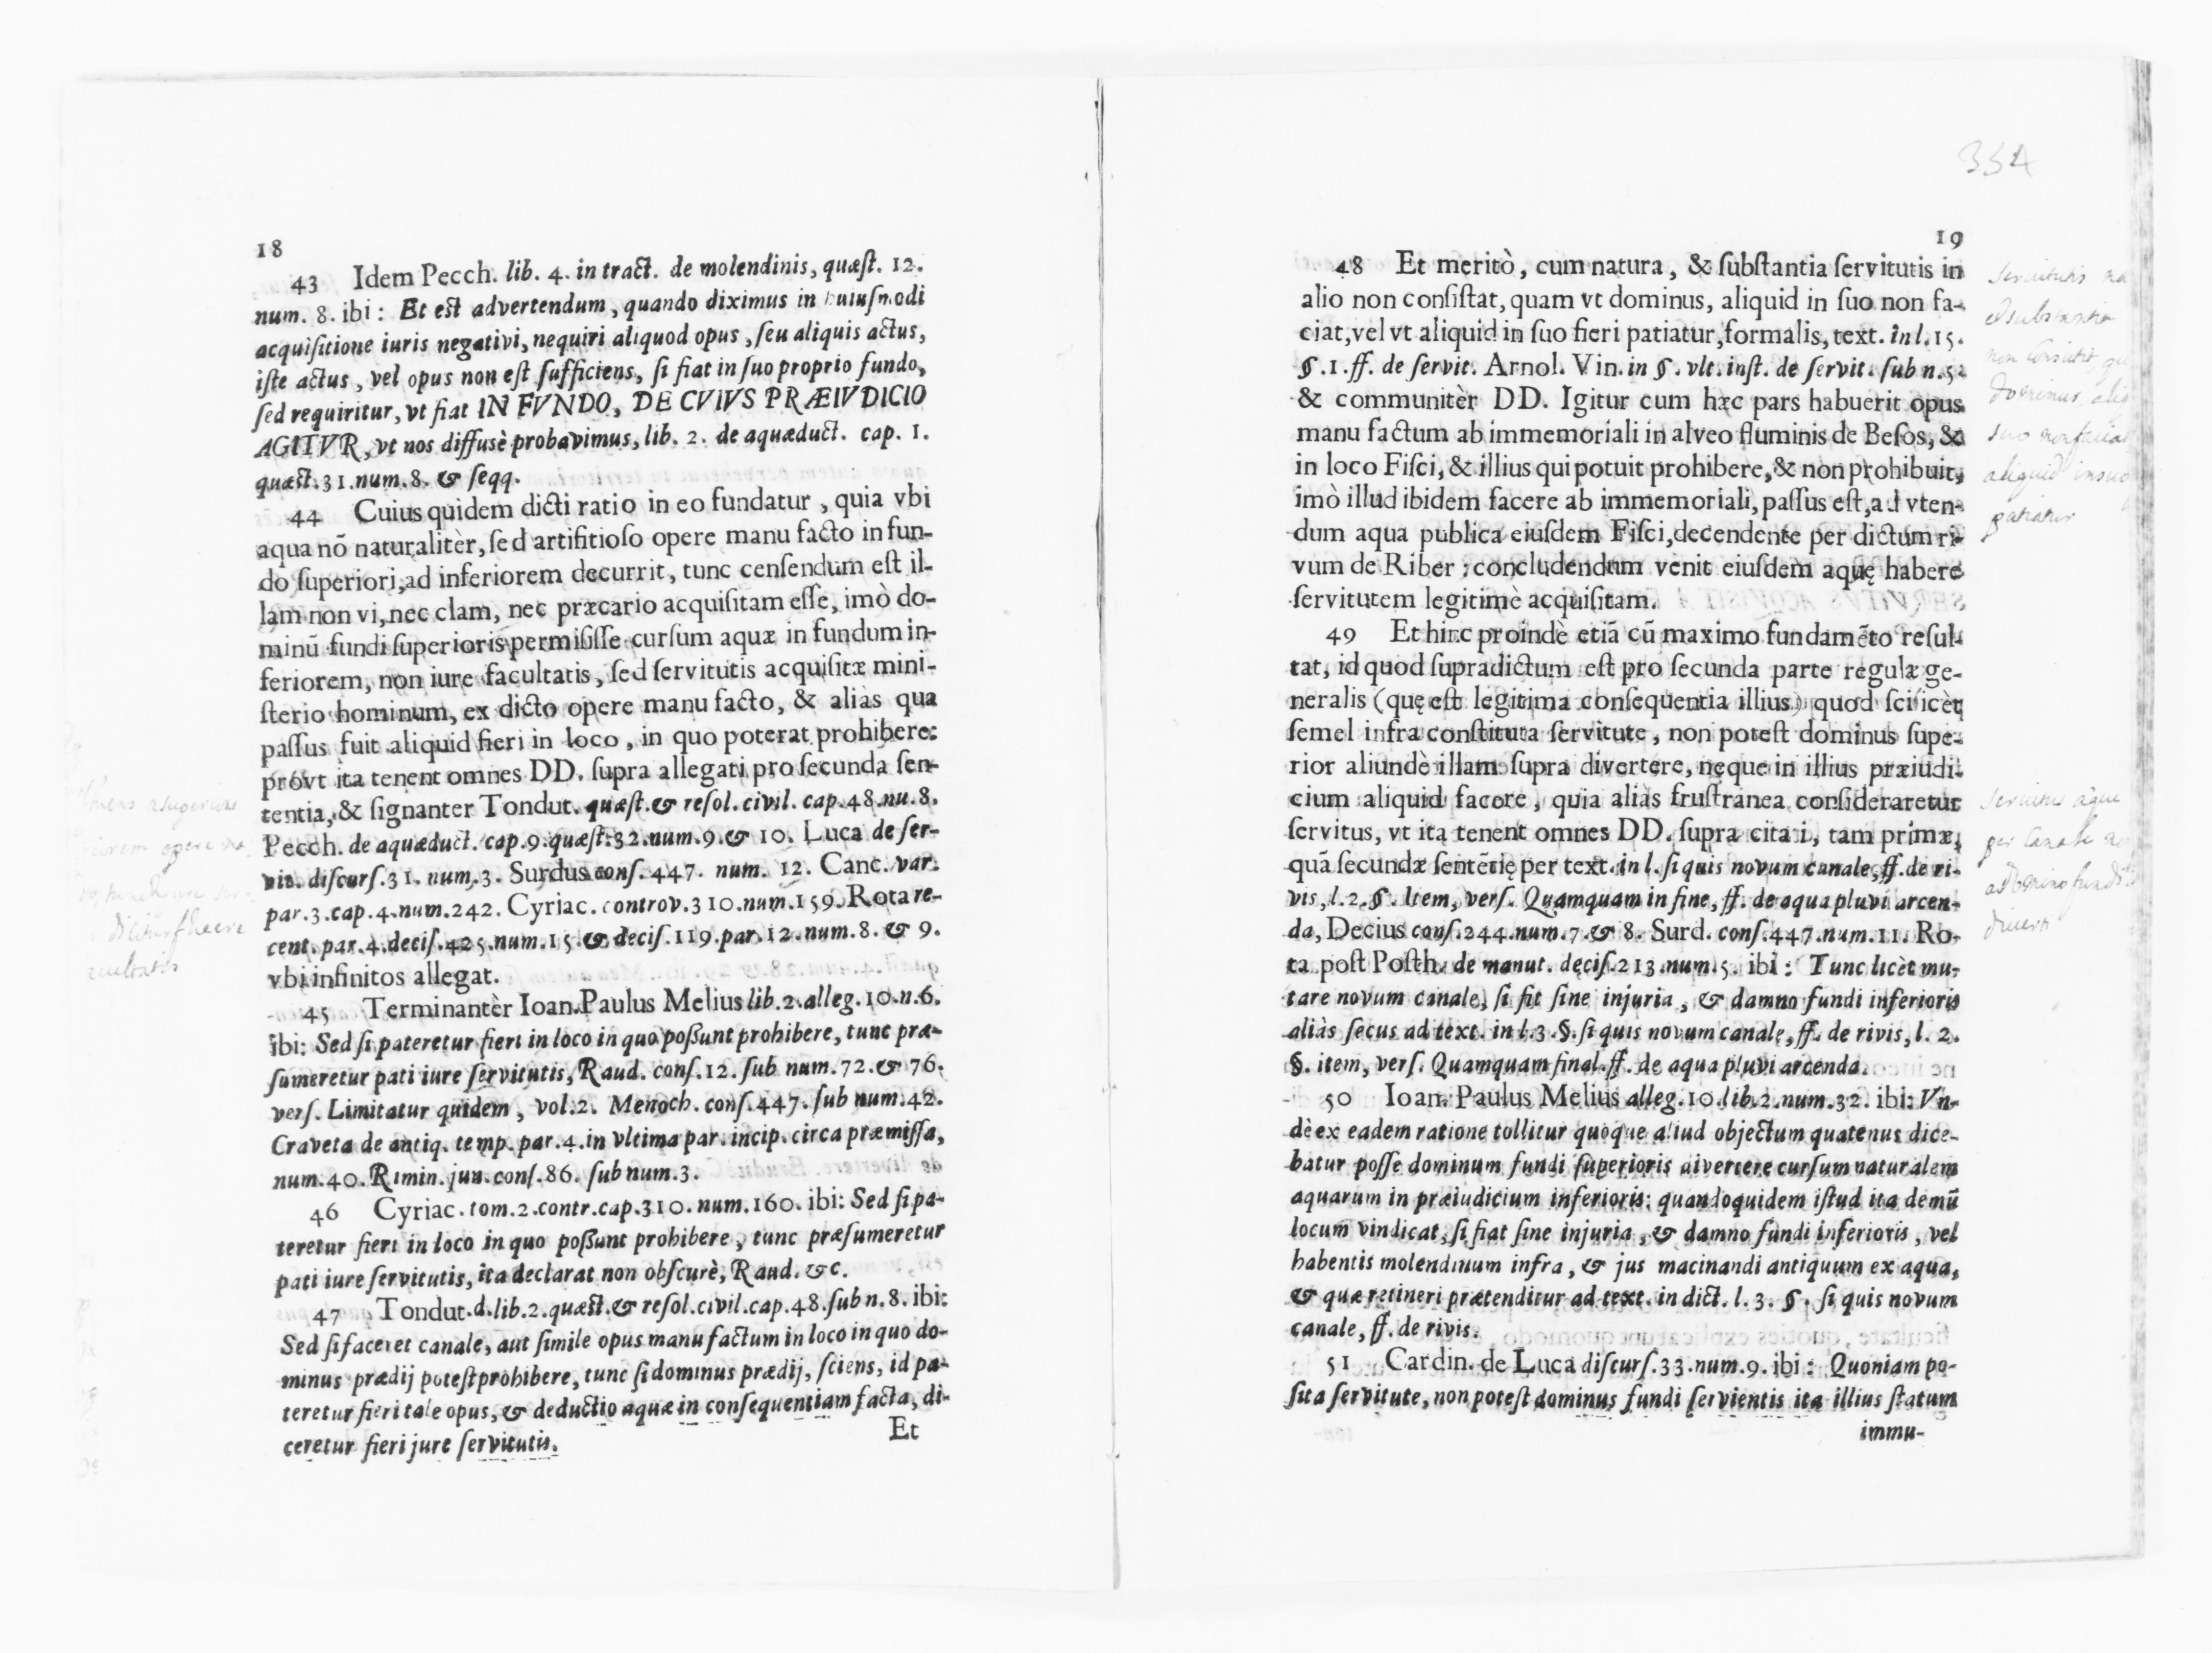 18
43 Idem Pecch. lib. 4. in tract. de molendinis, quæſt. 12.
num. 8. ibi: Et est advertendum, quando diximus in huiuſmodi
acquiſitione iuris negativi, nequiri aliquod opus, ſeu aliquis actus,
iſte actus, vel opus non eſt ſufficiens, ſi fiat in ſuo proprio fundo,
ſed requiritur, vt fiat IN FVNDO, DE CVIVS PRÆIVDICIO
AGITVR, vt nos diffusè probavimus, lib. 2. de aquæduct. cap. 1.
quæst. 31. num. 8. & ſeqq.
44 Cuius quidem dicti ratio in eo fundatur, quia vbi
aqua nõ naturalitèr, ſed artifitioſo opere manu facto in fun-
do ſuperiori, ad inferiorem decurrit, tunc cenſendum eſt il-
lam non vi, nec clam, nec præcario acquiſitam eſſe, imò do-
minũ fundi ſuperioris permiſiſſe curſum aquæ in fundum in-
feriorem, non iure facultatis, ſed ſervitutis acquiſitæ mini-
ſterio hominum, ex dicto opere manu facto, & aliàs qua
paſſus fuit aliquid fieri in loco, in quo poterat prohibere:
pròvt ita tenent omnes DD. ſupra allegati pro ſecunda ſen-
tentia, & ſignanter Tondut. quæſt. & reſol. civil. cap. 48. nu. 8.
Pecch. de aquæduct. cap. 9. quæſt. 32. num. 9. & 10. Luca de ſer-
vit. diſcurſ. 31. num. 3. Surdus conſ. 447. num. 12. Canc. var.
par. 3. cap. 4. num. 242. Cyriac. controv. 310. num. 159. Rota re-
cent. par. 4. deciſ. 425. num. 15 & deciſ. 119. par. 12. num. 8. & 9.
vbi infinitos allegat.
45 Terminantèr Ioan. Paulus Melius lib. 2. alleg. 10. n. 6.
ibi: Sed ſi pateretur fieri in loco in quo poßunt prohibere, tunc præ-
ſumeretur pati iure ſervitutis, Raud. conſ. 12. ſub num. 72. & 76.
verſ. Limitatur quidem, vol. 2. Menoch. conſ. 447. ſub num. 42.
Craveta de antiq. temp. par. 4. in vltima par. incip. circa præmiſſa,
num. 40. Rimin. jun. conſ. 86. ſub num. 3.
46 Cyriac. tom. 2. contr. cap. 310. num. 160. ibi: Sed ſi pa-
teretur fieri in loco in quo poßunt prohibere, tunc præſumeretur
pati iure ſervitutis, ita declarat non obſcurè, Raud. &c.
47 Tondut. d. lib. 2. quæst. & reſol. civil. cap. 48. ſub n. 8. ibi:
Sed ſi faceret canale, aut ſimile opus manu factum in loco in quo do-
minus prædij poteſt prohibere, tunc ſi dominus prædij, ſciens, id pa-
teretur fieri tale opus, & deductio aquæ in conſequentiam facta, di-
ceretur fieri jure ſervitutis.
Et
334
19
48 Et meritò, cum natura, & ſubſtantia ſervitutis in
alio non conſiſtat, quam vt dominus, aliquid in ſuo non fa-
ciat, vel vt aliquid in ſuo fieri patiatur, formalis, text. in l. 15.
§. 1. ff. de ſervit. Arnol. Vin. in §. vlt. inſt. de ſervit. ſub n. 5.
& communitèr DD. Igitur cum hæc pars habuerit opus
manu factum ab immemoriali in alveo fluminis de Beſos, &
in loco Fiſci, & illius qui potuit prohibere, & non prohibuit,
imò illud ibidem facere ab immemoriali, paſſus eſt, ad vten-
dum aqua publica eiuſdem Fiſci, decendente per dictum ri-
vum de Riber: concludendum venit eiuſdem aquę habere
ſervitutem legitimè acquiſitam.
49 Et hinc proindè etiã cũ maximo fundamẽto reſul-
tat, id quod ſupradictum eſt pro ſecunda parte regulæ ge-
neralis (quę eſt legitima conſequentia illius) quod ſcilicèt
ſemel infra conſtituta ſervitute, non poteſt dominus ſupe-
rior aliundè illam ſupra divertere, neque in illius præiudi-
cium aliquid facere, quia aliàs fruſtranea conſideraretur
ſervitus, vt ita tenent omnes DD. ſupra citati, tam primæ,
quã ſecundæ ſentẽtię per text. in l. ſi quis novum canale, ff. de ri-
vis, l. 2. §. Item, verſ. Quamquam in fine, ff. de aqua pluvi arcen-
da, Decius conſ. 244. num. 7. & 8. Surd. conſ. 447. num. 11. Ro-
ta poſt Poſth. de manut. deciſ. 213. num. 5. ibi: Tunc licèt mu-
tare novum canale, ſi fit ſine injuria, & damno fundi inferioris
aliàs ſecus ad text. in l. 3. §. ſi quis novum canale, ff. de rivis, l. 2.
§. item, verſ. Quamquam final. ff. de aqua pluvi arcenda.
50 Ioan. Paulus Melius alleg. 10. lib. 2. num. 32. ibi: Vn-
dè ex eadem ratione tollitur quoque aliud objectum quatenus dice-
batur poſſe dominum fundi ſuperioris divertere curſum naturalem
aquarum in præiudicium inferioris: quandoquidem iſtud ita demũ
locum vindicat, ſi fiat ſine injuria, & damno fundi inferioris, vel
habentis molendinum infra, & jus macinandi antiquum ex aqua,
& quæ retineri prætenditur ad text. in dict. l. 3. §. ſi quis novum
canale, ff. de rivis.
51 Cardin. de Luca diſcurſ. 33. num. 9. ibi: Quoniam po-
ſita ſervitute, non poteſt dominus fundi ſervientis ita illius ſtatum
immu-
servitutis na
et substantia
non consistit
dominus, aliq
suo non faciat
aliquid in suo
patiatur
servitus aque
per canale
a domino fundi
diverti